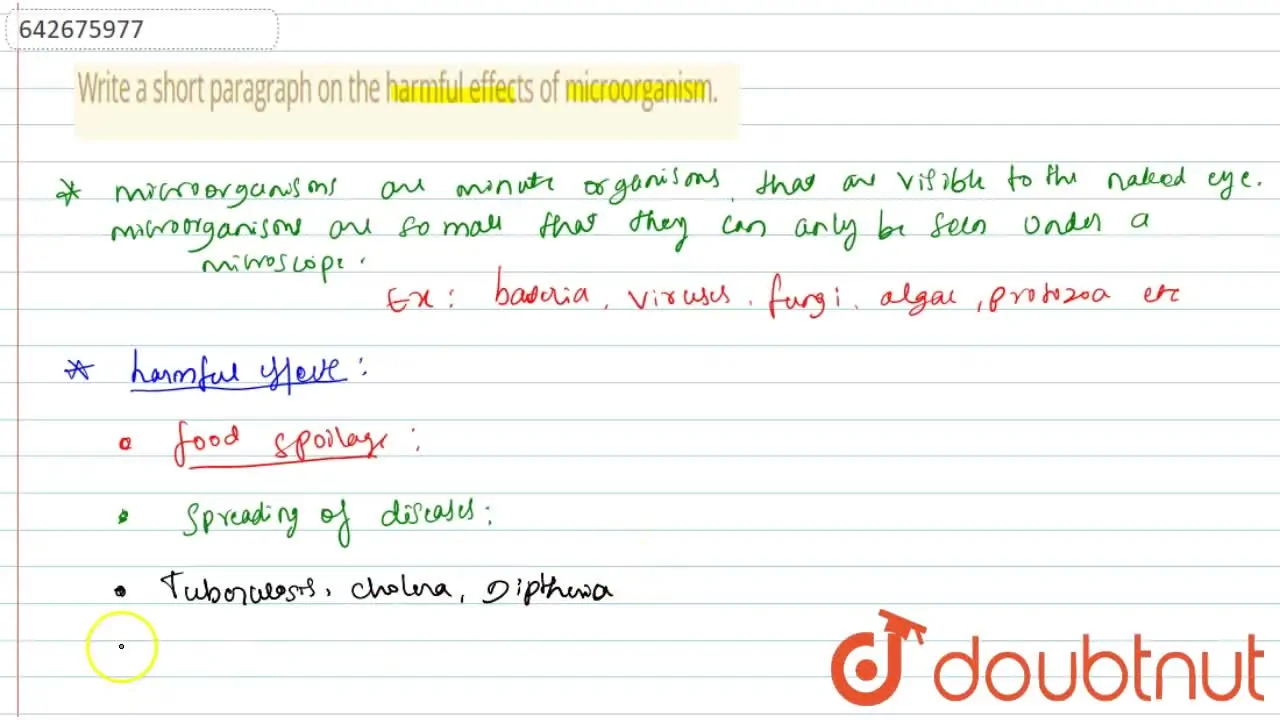 642675977
Write a short paragraph on the harmful effects of microorganism.
* microorganisms are minute organisms that are visible to the naked eye.
microorganisms are so small that they can only be seen under a
microscope.
Ex: bacteria, viruses, fungi, algae, protozoa etc
* harmful effect:
• food spoilage:
• Spreading of diseases:
• Tuberculosis, cholera, Diptheria
doubtnut